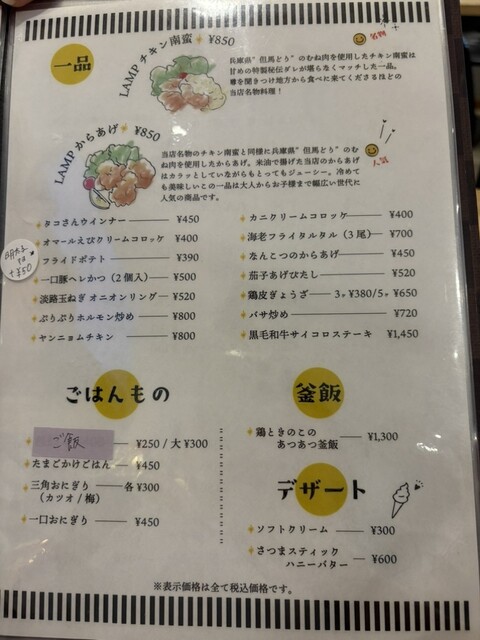 一品
LAMP チキン南蛮 ¥850
名物
兵庫県"但馬どり"のむね肉を使用したチキン南蛮は
甘めの特製秘伝ダレが堪らなくマッチした一品。
噂を聞きつけ地方から食べに来てくださるほどの
当店名物料理！
LAMP からあげ ¥850
人気
当店名物のチキン南蛮と同様に兵庫県"但馬どり"のむ
ね肉を使用したからあげ。米油で揚げた当店のからあげ
はカラッとしていながらもとってもジューシー。冷めて
も美味しいこの一品は大人からお子様まで幅広い世代に
人気の商品です。
タコさんウインナー ¥450
オマールえびクリームコロッケ ¥400
フライドポテト ¥390
明太子
マヨ
+¥50
一口豚ヘレかつ（2個入） ¥500
淡路玉ねぎ オニオンリング ¥520
ぷりぷりホルモン炒め ¥800
ヤンニョムチキン ¥800
カニクリームコロッケ ¥400
海老フライタルタル（3尾） ¥700
なんこつのからあげ ¥450
茄子あげびたし ¥520
鶏皮ぎょうざ 3ヶ¥380/5ヶ ¥650
バサ炒め ¥720
黒毛和牛サイコロステーキ ¥1,450
ごはんもの
ご飯 ¥250 / 大 ¥300
たまごかけごはん ¥450
三角おにぎり 各 ¥300
（カツオ / 梅）
一口おにぎり ¥450
釜飯
鶏ときのこの
あつあつ釜飯 ¥1,300
デザート
ソフトクリーム ¥300
さつまスティック
ハニーバター ¥600
※表示価格は全て税込価格です。